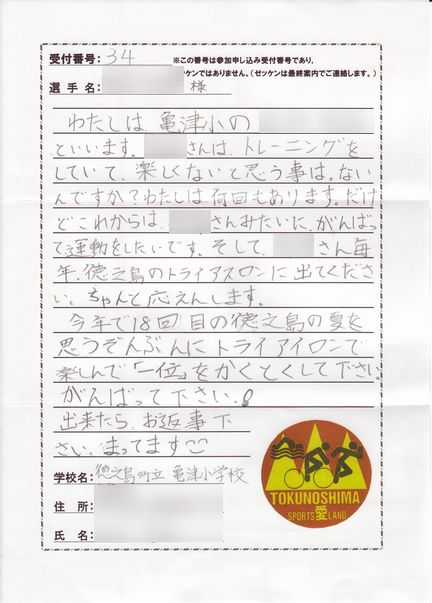 受付番号: 34 ※この番号は参加申し込み受付番号であり、
ッケンではありません。(ゼッケンは最終案内でご連絡します。)
選手名: 様
わたしは、亀津小の
といいます。 さんは、トレーニングを
していて、楽しくないと思う事は、ない
んですか?わたしは、何回もあります。だけ
どこれからは、 さんみたいに、がんばっ
て運動をしたいです。そして、 さん毎
年、徳之島のトライアスロンに出てくださ
い。ちゃんと応えんします。
今年で18回目の徳之島の夏を
思うぞんぶんにトライアイロンで
楽しんで「一位」をかくとくして下さい
がんばって下さい。!
出来たら、お返事下
さい、まってます
学校名: 徳之島町立 亀津小学校
住所:
氏名:
TOKUNOSHIMA
SPORTS 愛 LAND